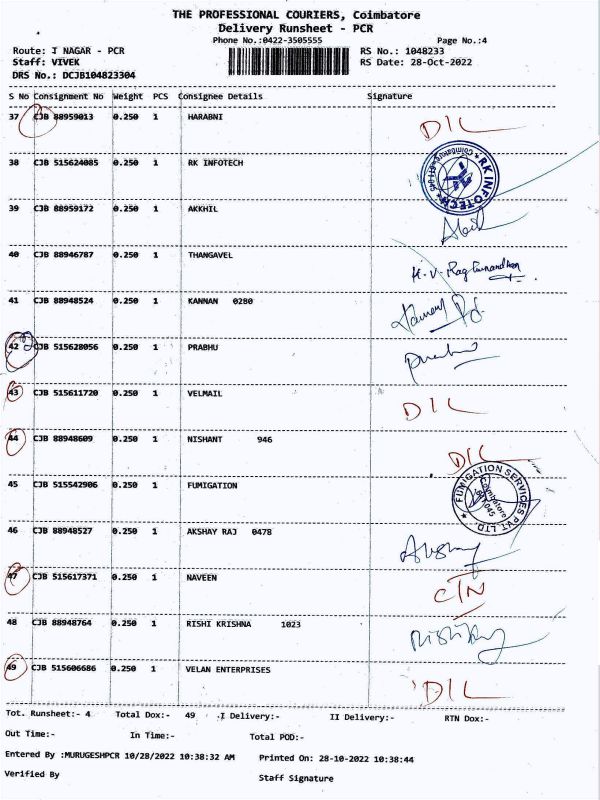 THE PROFESSIONAL COURIERS, Coimbatore
Delivery Runsheet - PCR
Phone No.:0422-3505555 Page No.:4
Route: T NAGAR - PCR RS No.: 1048233
Staff: VIVEK RS Date: 28-Oct-2022
DRS No.: DCJB104823304
S No Consignment No Weight PCS Consignee Details Signature
37 CJB 88959013 0.250 1 HARABNI D I L
38 CJB 515624085 0.250 1 RK INFOTECH RK INFOTECH
39 CJB 88959172 0.250 1 AKKHIL
40 CJB 88946787 0.250 1 THANGAVEL
41 CJB 88948524 0.250 1 KANNAN 0280
42 CJB 515628056 0.250 1 PRABHU
43 CJB 515611720 0.250 1 VELMAIL D I L
44 CJB 88948609 0.250 1 NISHANT 946 D I L
45 CJB 515542906 0.250 1 FUMIGATION FUMIGATION SERVICES PVT LTD Coimbatore
46 CJB 88948527 0.250 1 AKSHAY RAJ 0478
47 CJB 515617371 0.250 1 NAVEEN C/N
48 CJB 88948764 0.250 1 RISHI KRISHNA 1023
49 CJB 515606686 0.250 1 VELAN ENTERPRISES D I L
Tot. Runsheet:- 4 Total Dox:- 49 I Delivery:- II Delivery:- RTN Dox:-
Out Time:- In Time:- Total POD:-
Entered By :MURUGESHPCR 10/28/2022 10:38:32 AM Printed On: 28-10-2022 10:38:44
Verified By Staff Signature